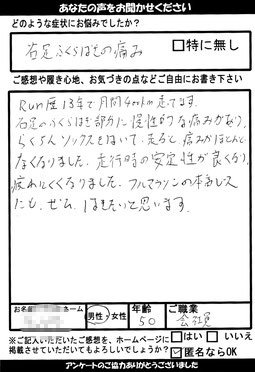 あなたの声をお聞かせください
どのような症状にお悩みでしたか?
右足ふくらはぎの痛み
□特に無し
ご感想や履き心地、お気づきの点などご自由にお書き下さい
Run歴13年で月間400km走ってます。
右足のふくらはぎ部分に慢性的な痛みがあり、
らくらくソックスをはいて、走ると、痛みがほとんど
なくなりました。走行時の安定性が良くなり、
疲れにくくなりました。フルマラソンの本命レース
にも、ぜひ、はきたいと思います。
お名前 ホーム
男性・女性
年齢
50
ご職業
会社員
※ご記入いただいたご感想を、ホームページに
掲載させていただいてもよろしいでしょうか?
□はい □いいえ
☑匿名ならOK
アンケートのご協力ありがとうございました